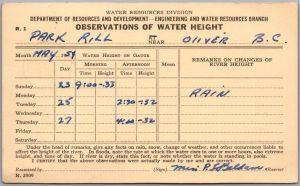 WATER RESOURCES DIVISION
DEPARTMENT OF RESOURCES AND DEVELOPMENT – ENGINEERING AND WATER RESOURCES BRANCH
OBSERVATIONS OF WATER HEIGHT
PARK RILL AT NEAR OLIVER B.C.
Month MAY 1954 WATER HEIGHT ON GAUGE
DAY MORNING AFTERNOON REMARKS ON CHANGES OF RIVER HEIGHT
Time Height Time Height
Sunday 23 9:00 .33
Monday
Tuesday 25 2:30 .52 RAIN
Wednesday
Thursday 27 4:00 .52
Friday
Saturday
Under the head of remarks, give any facts on rain, snow, change of weather, or other occurrences likely to affect the
height. In floods, note the rate at which the water rises in one or more hours, also extreme
height, and time of day. If river is dry, state this fact, or note whether the water is standing in pools.
I certify that the above observations were actually made by me and are correct.
Examined by (Sgn.) Miss (Observer)